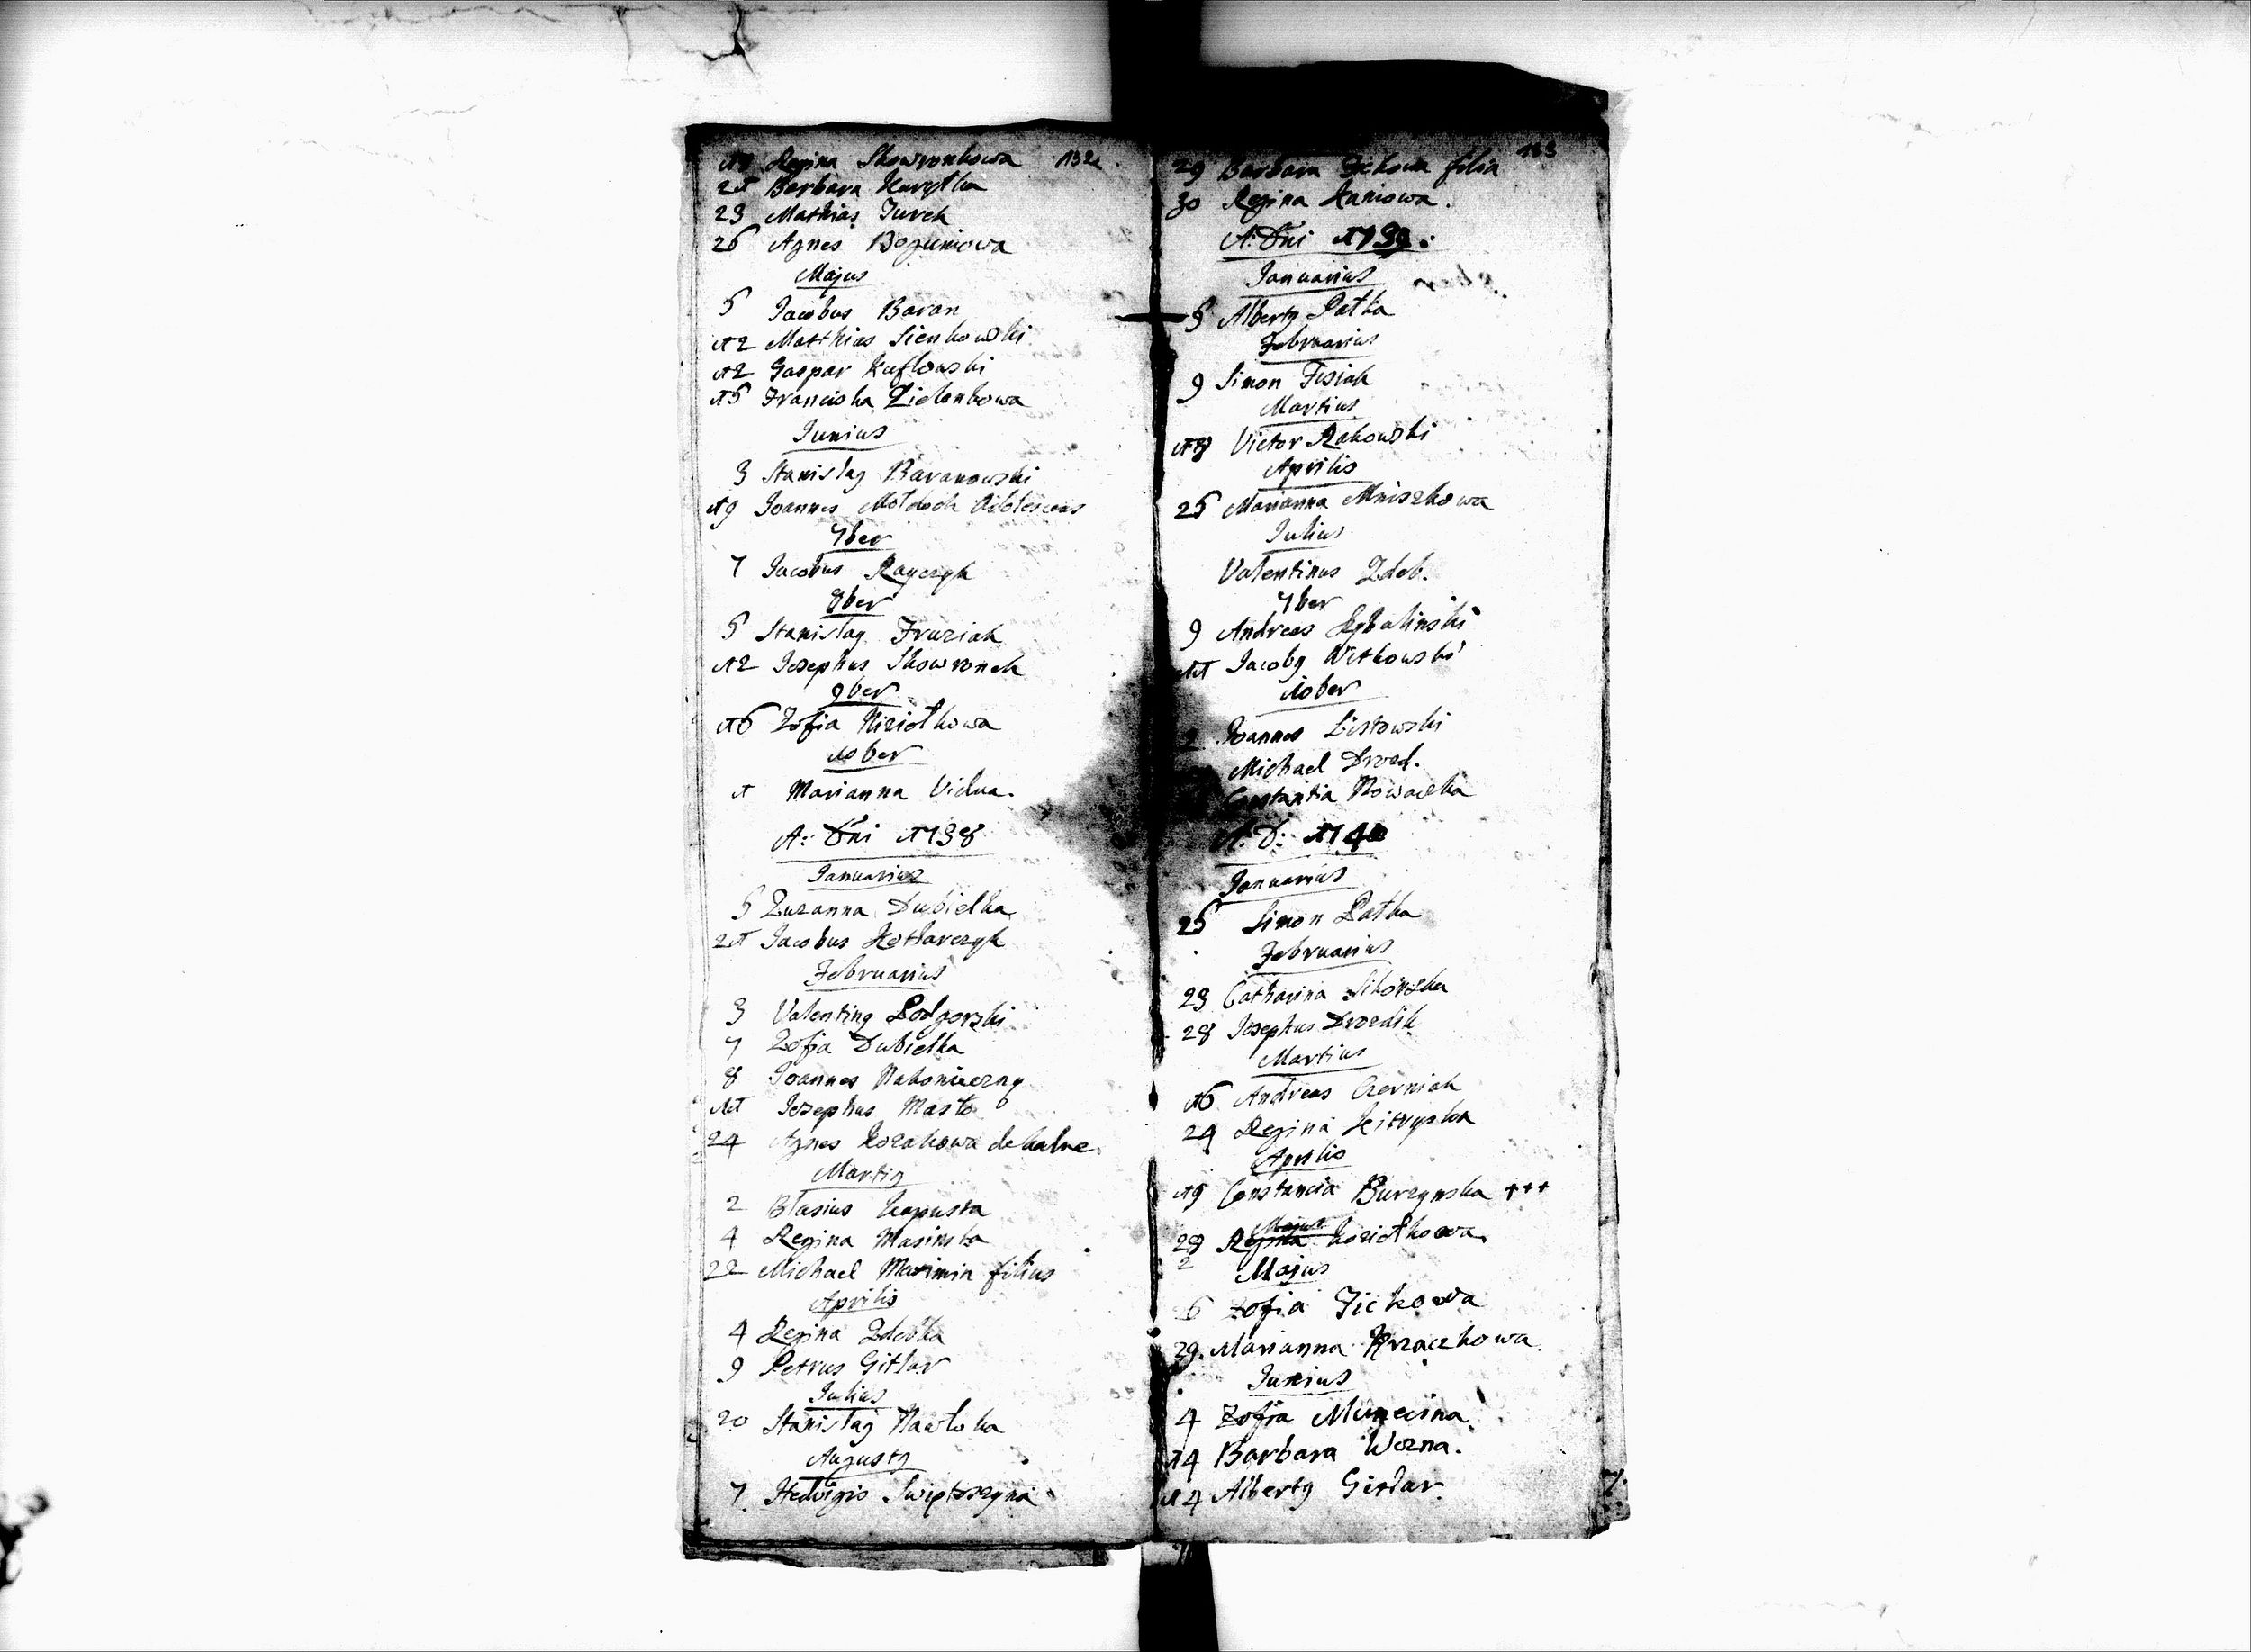 19 Regina Skowronkowa 132
21 Barbara Kurytka
23 Mathias Turek
26 Agnes Boguniowa
Majus
5 Jacobus Baran
12 Matthias Sienkowski
12 Gaspar Kuflowski
15 Franciska Zielonkowa
Junius
3 Stanislaꝰ Baranowski
19 Joannes Motdoch Adolescens
7ber
7 Jacobus Rayczyk
8ber
5 Stanislaꝰ Fruziak
12 Josephus Skowronek
9ber
16 Zofia Niziołkowa
10ber
1 Marianna Vidua.
A: Dni 1738
Januarius
5 Zuzanna Dubielka
21 Jacobus Kotlarczyk
Februarius
3 Valentinꝰ Podgorski
7 Zofia Dubielka
8 Joannes Nakonieczny
11 Josephus Masło
24 Agnes Kozakowa de
Martiꝰ
2 Blasius Kapusta
4 Regina
22 Michael filius
Aprilis
4 Regina Zdebka
9 Petrus Gitlar
Julius
20 Stanislaꝰ Nawłoka
Augustꝰ
7. Hedvigis
29 Barbara filia 133
30 Regina Kaniowa.
A: Dni 1739.
Januarius
5 Albertꝰ Patka
Februarius
9 Simon Fisiak
Martius
18 Victor Rakowski
Aprilis
25 Marianna Mniszkowa
Julius
Valentinus Zdeb.
7ber
9 Andreas Rybalinski
11 Jacobꝰ Witkowski
10ber
2 Joannes Listowski
Michael Drozd.
Constantia Nowacka
A: D: 1740
Januarius
25 Simon Patka
Februarius
23 Catharina Sikorska
28 Josephus Drozdik
Martius
16 Andreas Czerniak
24 Regina Kitryska
Aprilis
19 Constancia Burzynska +++
Majus
29 Regina Koziołkowa
2 Majus
6 Zofia Jickowa
29. Marianna Krzaczkowa.
Junius
4 Zofia Munecina
14 Barbara Wozna.
14 Albertꝰ Gitlar